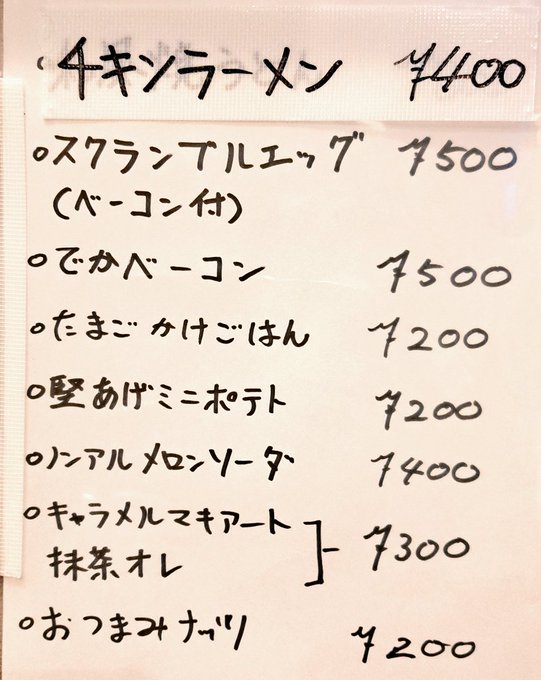 チキンラーメン ¥400
○スクランブルエッグ ¥500
(ベーコン付)
○でかベーコン ¥500
○たまごかけごはん ¥200
○堅あげミニポテト ¥200
○ノンアルメロンソーダ ¥400
○キャラメルマキアート
抹茶オレ ¥300
○おつまみナッツ ¥200